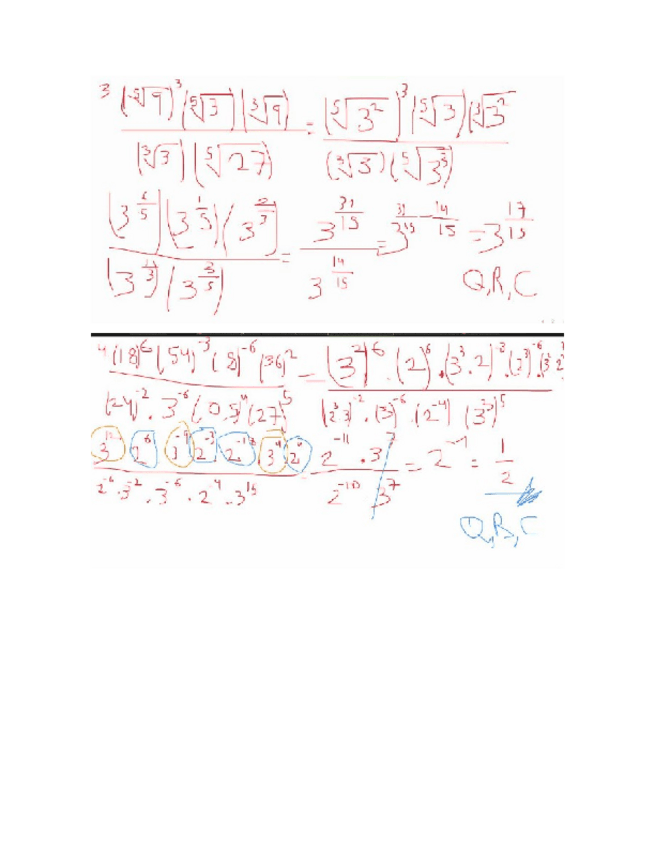 3 (⁵√9)³ (⁵√3) (³√9) / (³√3) (⁵√27) = (⁵√3²)³ (⁵√3) (³√3²) / (³√3) (⁵√3³)
(3^6/5) (3^1/5) (3^2/3) / (3^1/3) (3^3/5) = 3^31/15 / 3^14/15 = 3^31/15 - 14/15 = 3^17/15
Q, R, C
4 (18)^6 (54)^-3 (8)^-6 (36)^2 / (24)^-2 · 3^-6 (0.5)^4 (27)^5 = (3^2)^6 · (2)^6 · (3^3 · 2)^-3 · (2^3)^-6 / (2^3 3)^-2 · (3)^-6 · (2^-4) (3^3)^5
3^12 2^6 3^-9 2^-3 2^-18 3^4 2^4 / 2^-6 · 3^-2 · 3^-6 · 2^-4 · 3^15 = 2^-11 · 3^7 / 2^-10 3^7 = 2^-1 = 1/2
Q, R, C